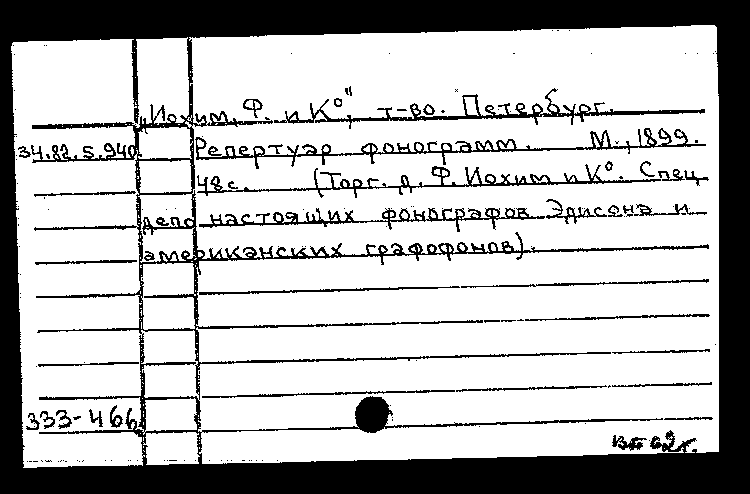 „Иохим, Ф. и К°", т-во. Петербург.
34.82.5.940 Репертуар фонограмм. М., 1899.
48с. (Торг. д. Ф. Иохим и К°. Спец
депо настоящих фонографов Эдисона и
американских графофонов).
333-466